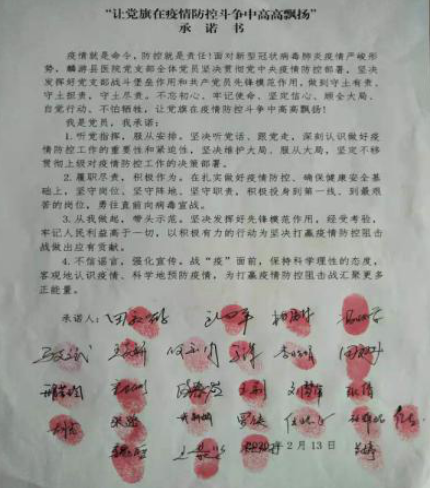 “让党旗在疫情防控斗争中高高飘扬”
承 诺 书
疫情就是命令，防控就是责任！面对新型冠状病毒肺炎疫情严峻形
势，麟游县医院党支部全体党员坚决贯彻党中央疫情防控部署，坚决
发挥好党支部战斗堡垒作用和共产党员先锋模范作用，做到守土有责、
守土担责，守土尽责。不忘初心、牢记使命、坚定信心、顾全大局、
自觉行动、不怕牺牲，让党旗在疫情防控斗争中高高飘扬！
我是党员，我承诺：
1. 听党指挥，服从安排。坚决听党话、跟党走，深刻认识做好疫
情防控工作的重要性和紧迫性，坚决维护大局、服从大局，坚定不移
贯彻上级对疫情防控工作的决策部署。
2. 履职尽责，积极作为。在扎实做好疫情防控、确保健康安全基
础上，坚守岗位、坚守阵地、坚守职责，积极投身到第一线、到最艰
苦的岗位，勇往直前向病毒宣战。
3. 从我做起，带头示范。坚决发挥好先锋模范作用，经受考验，
牢记人民利益高于一切，以积极有力的行动为坚决打赢疫情防控阻击
战做出应有贡献。
4. 不信谣言，强化宣传。战“疫”面前，保持科学理性的态度，
客观地认识疫情、科学地预防疫情，为打赢疫情防控阻击战汇聚更多
正能量。
承诺人：
2020年2月13日